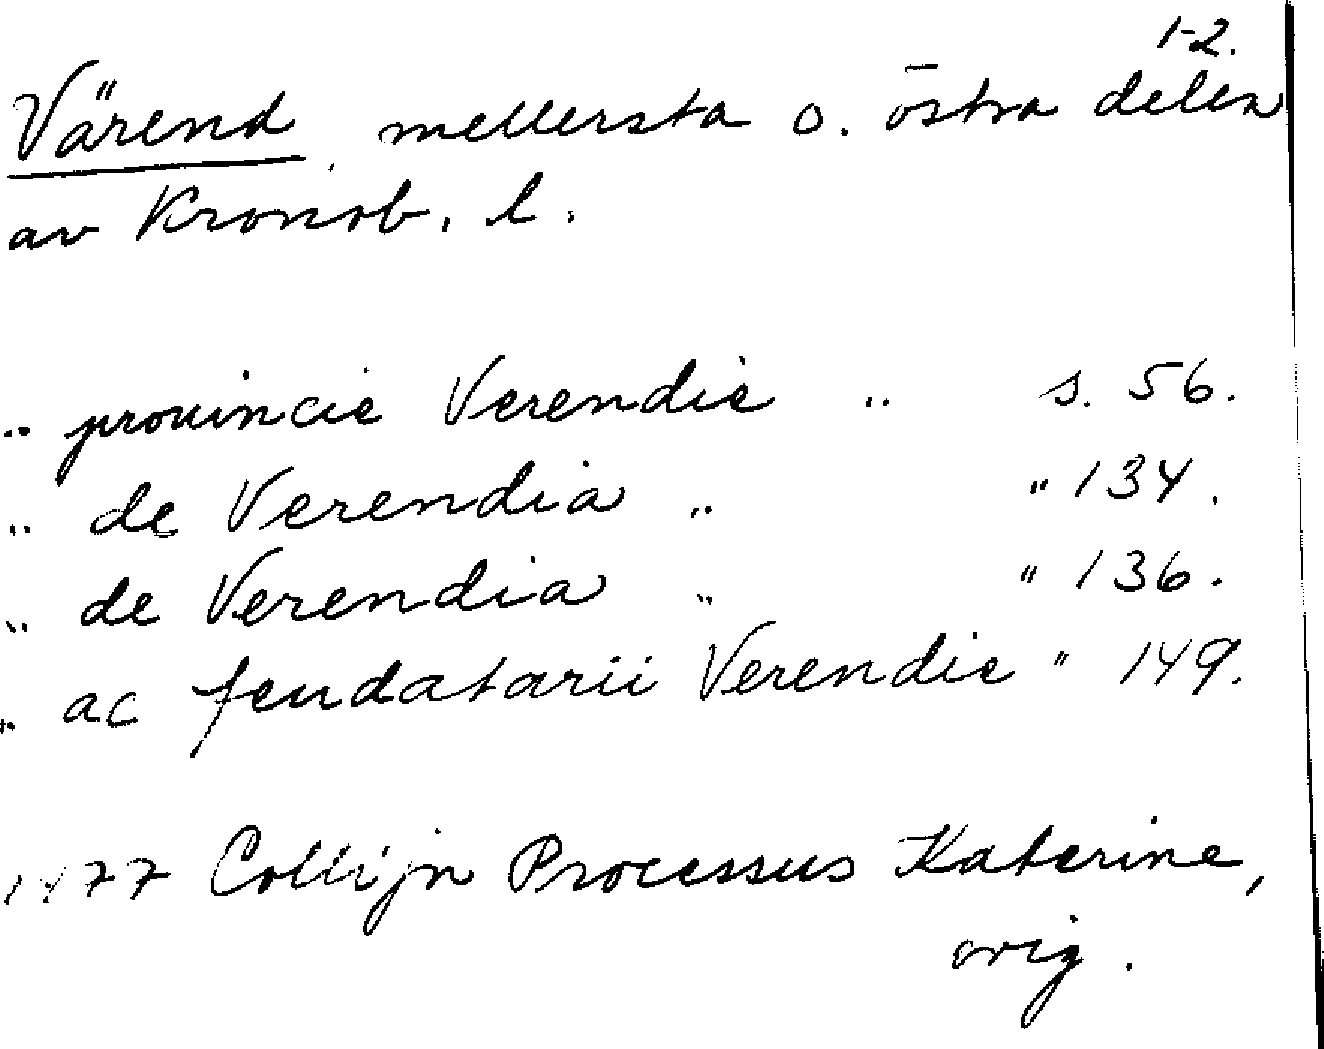 1-2.
Värend, mellersta o. östra delen
av Kronob. l.
.. prouincie Verendie .. s. 56.
.. de Verendia .. " 134.
.. de Verendia .. " 136.
.. ac feudatarii Verendie " 149.
1477 Collijn Processus Katerine,
orig.